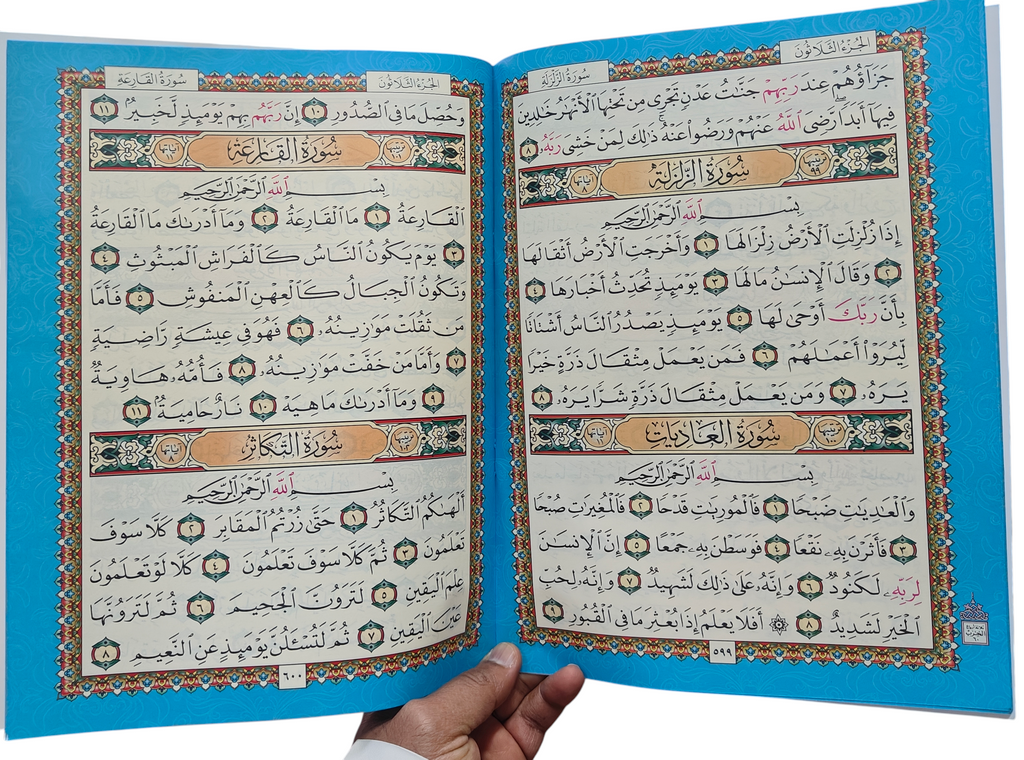 الجزء الثلاثون
سورة الزلزلة
جَزَآؤُهُمْ عِندَ رَبِّهِمْ جَنَّٰتُ عَدْنٍ تَجْرِى مِن تَحْتِهَا ٱلْأَنْهَٰرُ خَٰلِدِينَ
فِيهَآ أَبَدًا ۖ رَّضِىَ ٱللَّهُ عَنْهُمْ وَرَضُوا۟ عَنْهُ ۚ ذَٰلِكَ لِمَنْ خَشِىَ رَبَّهُۥ ٨
ترتيبها ٩٩ سُورَةُ الزَّلْزَلَةِ آياتها ٨
بِسْمِ ٱللَّهِ ٱلرَّحْمَٰنِ ٱلرَّحِيمِ
إِذَا زُلْزِلَتِ ٱلْأَرْضُ زِلْزَالَهَا ١ وَأَخْرَجَتِ ٱلْأَرْضُ أَثْقَالَهَا
٢ وَقَالَ ٱلْإِنسَٰنُ مَا لَهَا ٣ يَوْمَئِذٍ تُحَدِّثُ أَخْبَارَهَا ٤
بِأَنَّ رَبَّكَ أَوْحَىٰ لَهَا ٥ يَوْمَئِذٍ يَصْدُرُ ٱلنَّاسُ أَشْتَاتًا
لِّيُرَوْا۟ أَعْمَٰلَهُمْ ٦ فَمَن يَعْمَلْ مِثْقَالَ ذَرَّةٍ خَيْرًا
يَرَهُۥ ٧ وَمَن يَعْمَلْ مِثْقَالَ ذَرَّةٍ شَرًّا يَرَهُۥ ٨
ترتيبها ١٠٠ سُورَةُ الْعَادِيَاتِ آياتها ١١
بِسْمِ ٱللَّهِ ٱلرَّحْمَٰنِ ٱلرَّحِيمِ
وَٱلْعَٰدِيَٰتِ ضَبْحًا ١ فَٱلْمُورِيَٰتِ قَدْحًا ٢ فَٱلْمُغِيرَٰتِ صُبْحًا
٣ فَأَثَرْنَ بِهِۦ نَقْعًا ٤ فَوَسَطْنَ بِهِۦ جَمْعًا ٥ إِنَّ ٱلْإِنسَٰنَ
لِرَبِّهِۦ لَكَنُودٌ ٦ وَإِنَّهُۥ عَلَىٰ ذَٰلِكَ لَشَهِيدٌ ٧ وَإِنَّهُۥ لِحُبِّ
ٱلْخَيْرِ لَشَدِيدٌ ٨ ۞ أَفَلَا يَعْلَمُ إِذَا بُعْثِرَ مَا فِى ٱلْقُبُورِ ٩
٥٩٩
الجزء الثلاثون
سورة القارعة
وَحُصِّلَ مَا فِى ٱلصُّدُورِ ١٠ إِنَّ رَبَّهُم بِهِمْ يَوْمَئِذٍ لَّخَبِيرٌۢ ١١
ترتيبها ١٠١ سُورَةُ الْقَارِعَةِ آياتها ١١
بِسْمِ ٱللَّهِ ٱلرَّحْمَٰنِ ٱلرَّحِيمِ
ٱلْقَارِعَةُ ١ مَا ٱلْقَارِعَةُ ٢ وَمَآ أَدْرَىٰكَ مَا ٱلْقَارِعَةُ
٣ يَوْمَ يَكُونُ ٱلنَّاسُ كَٱلْفَرَاشِ ٱلْمَبْثُوثِ ٤
وَتَكُونُ ٱلْجِبَالُ كَٱلْعِهْنِ ٱلْمَنفُوشِ ٥ فَأَمَّا
مَن ثَقُلَتْ مَوَٰزِينُهُۥ ٦ فَهُوَ فِى عِيشَةٍ رَّاضِيَةٍ
٧ وَأَمَّا مَنْ خَفَّتْ مَوَٰزِينُهُۥ ٨ فَأُمُّهُۥ هَاوِيَةٌ
٩ وَمَآ أَدْرَىٰكَ مَا هِيَهْ ١٠ نَارٌ حَامِيَةٌۢ ١١
ترتيبها ١٠٢ سُورَةُ التَّكَاثُرِ آياتها ٨
بِسْمِ ٱللَّهِ ٱلرَّحْمَٰنِ ٱلرَّحِيمِ
أَلْهَىٰكُمُ ٱلتَّكَاثُرُ ١ حَتَّىٰ زُرْتُمُ ٱلْمَقَابِرَ ٢ كَلَّا سَوْفَ
تَعْلَمُونَ ٣ ثُمَّ كَلَّا سَوْفَ تَعْلَمُونَ ٤ كَلَّا لَوْ تَعْلَمُونَ
عِلْمَ ٱلْيَقِينِ ٥ لَتَرَوُنَّ ٱلْجَحِيمَ ٦ ثُمَّ لَتَرَوُنَّهَا
عَيْنَ ٱلْيَقِينِ ٧ ثُمَّ لَتُسْـَٔلُنَّ يَوْمَئِذٍ عَنِ ٱلنَّعِيمِ ٨
٦٠٠